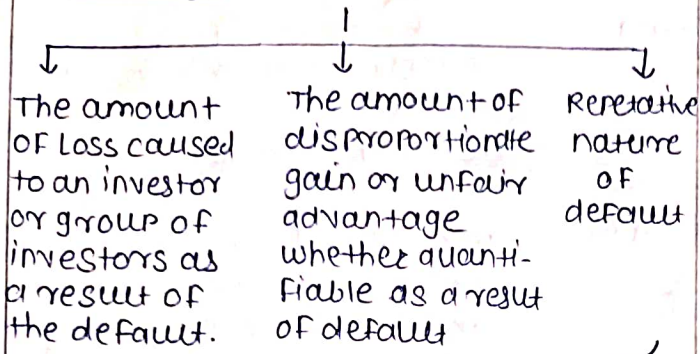 The amount
of Loss caused
to an investor
or group of
investors as
a result of
the default.
The amount of
disproportionate
gain or unfair
advantage
whether quanti-
fiable as a result
of default
Repetative
nature
of
default